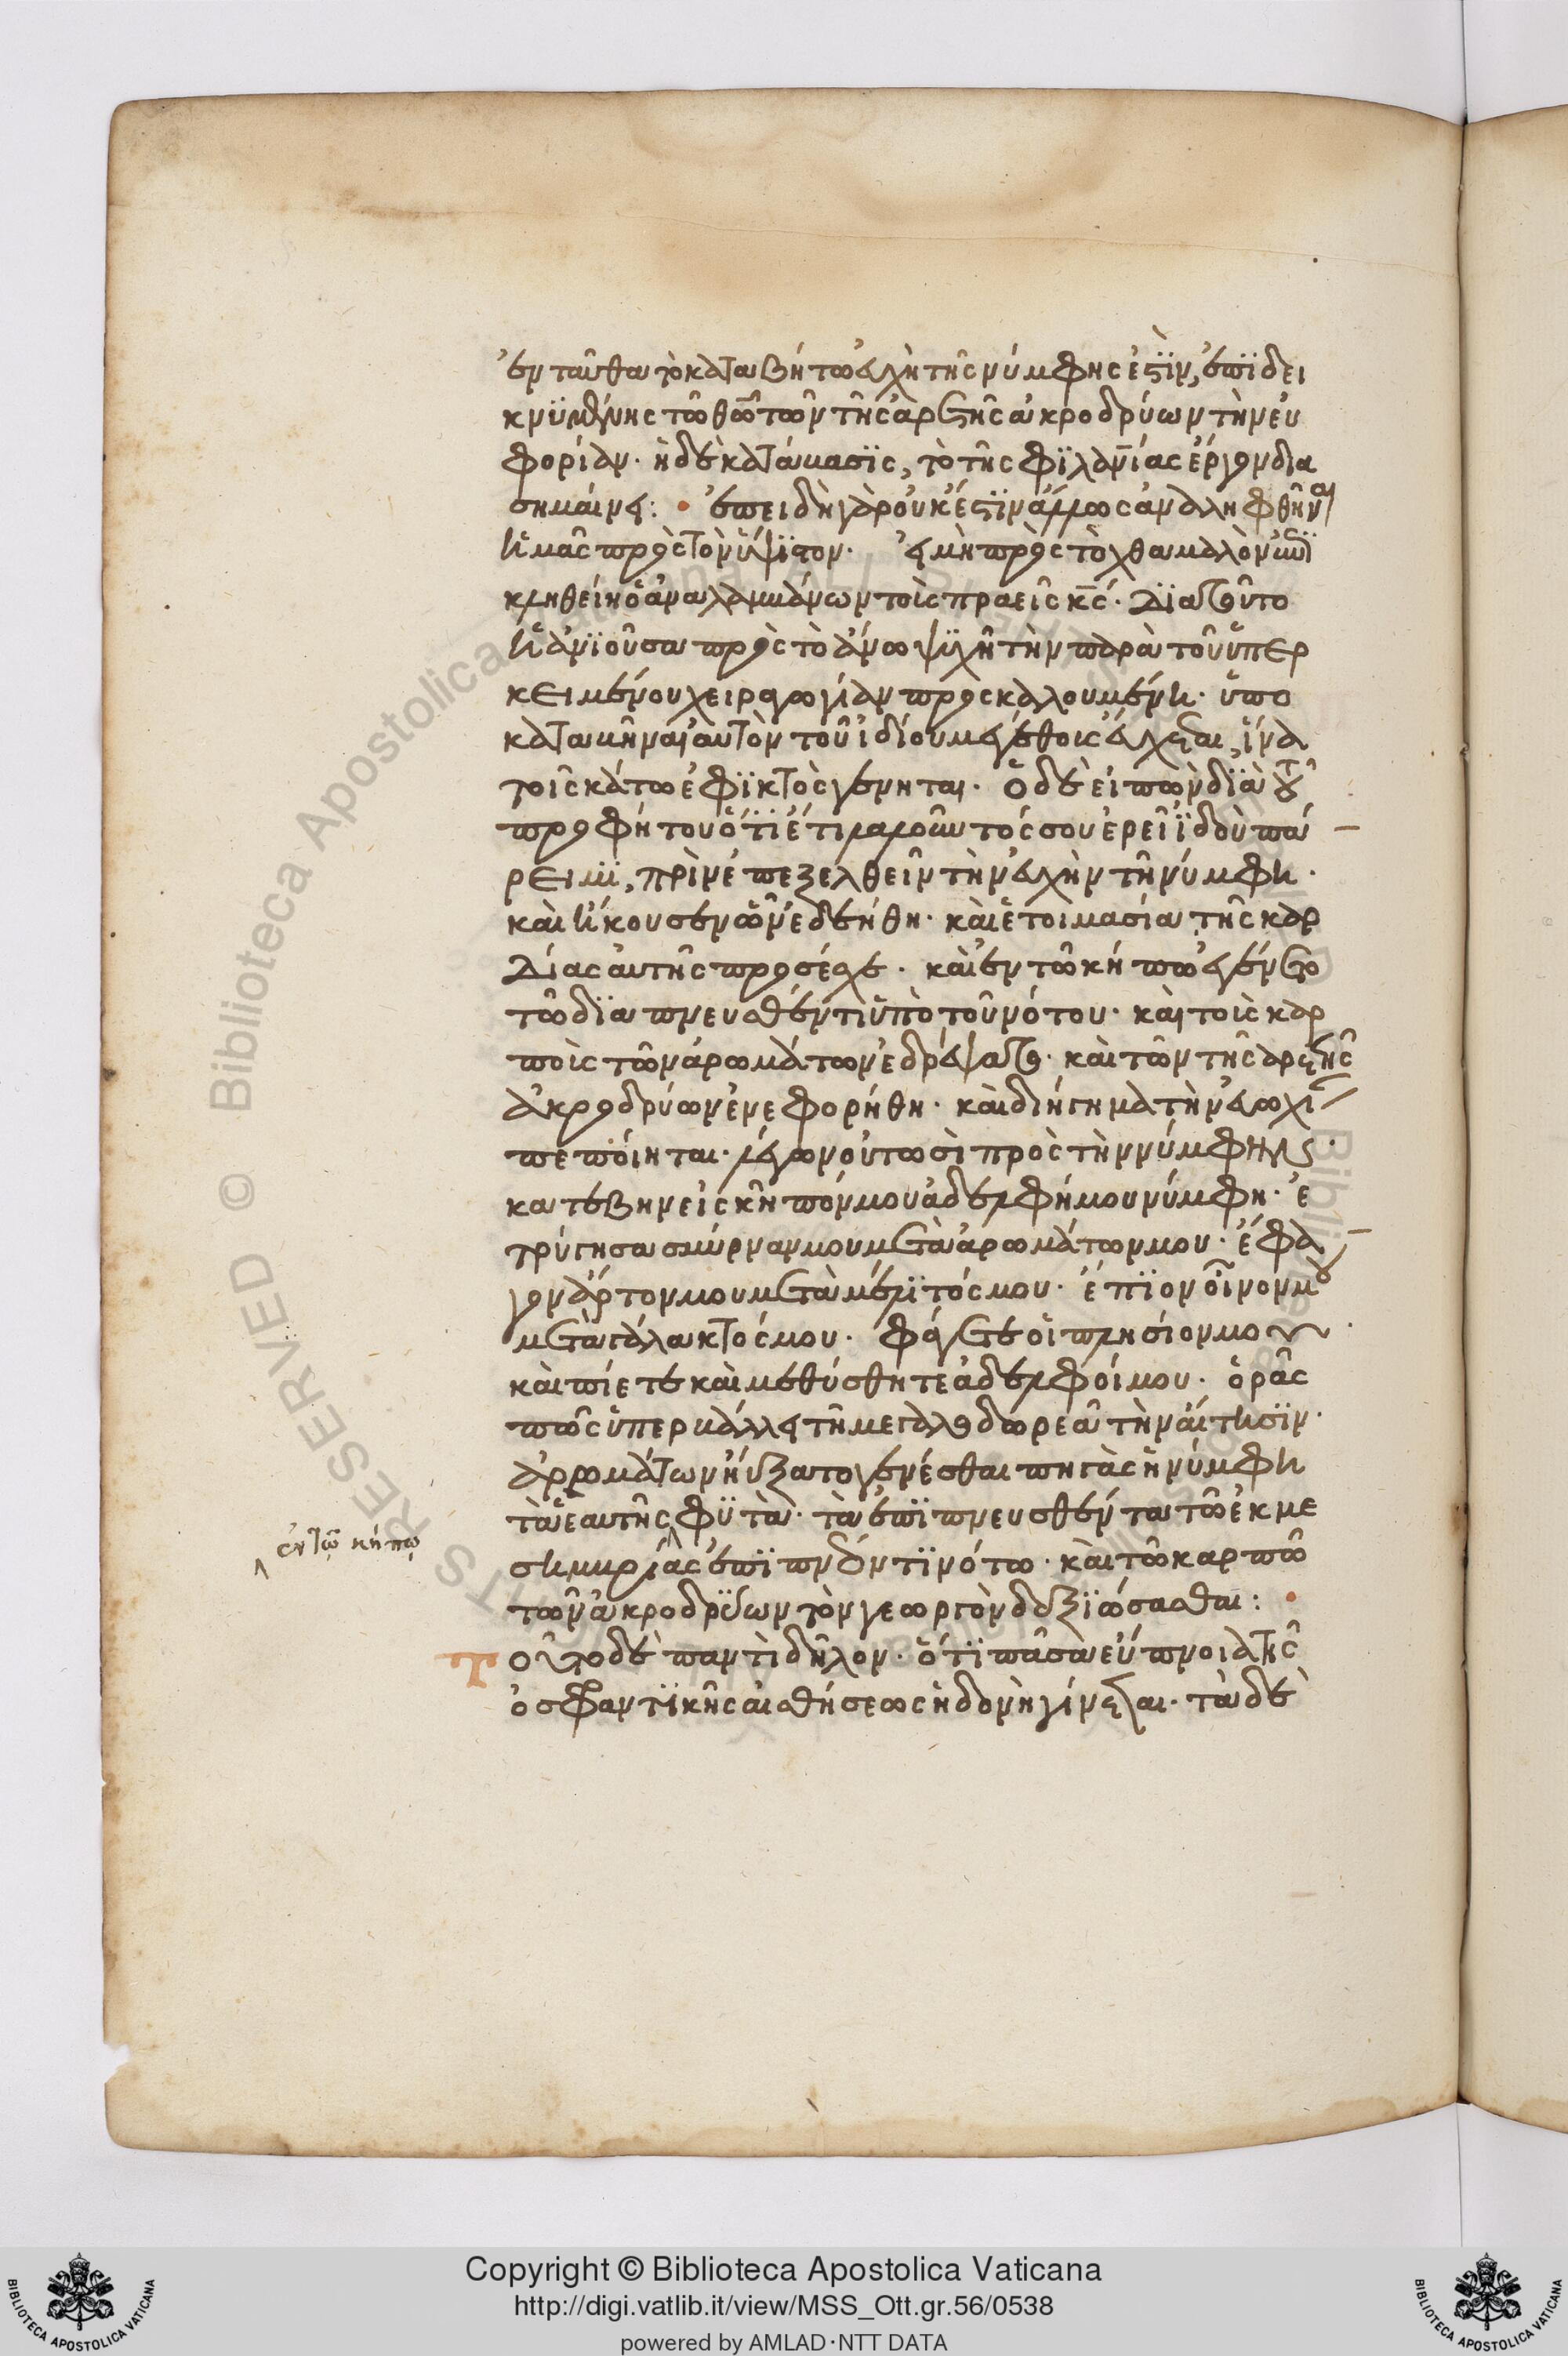 ἐνταῦθα τὸ καταβήτω εὐχὴ τῆς νύμφης ἐστὶν, ἐπιδει
κνυμένης τῶ θῶ τῶν τῆς ἀρετῆς ἀκροδρύων τὴν εὐ
φορίαν· ἡ δὲ κατάβασις, τὸ τῆς φιλανίας ἔργον δια
σημαίνει: · ἐπειδὴ γὰρ οὐκ ἔστιν ἄλλως ἀναληφθῆναι
ἡμᾶς πρὸς τὸν ὕψιστον· εἰ μὴ πρὸς τὸ χθαμαλὸν ἐπι
κληθείη ὁ ἀναλαμβάνων τοὺς πραεῖς κς· Διὰ τοῦτο
ἡ ἀνιοῦσα πρὸς τὸ ἄνω ψυχὴ τὴν παρὰ τοῦ ὑπερ
κειμένου χειραγωγίαν προσκαλουμένη· ὑπο
καταβῆναι αὐτὸν τοῦ ἰδίου μεγέθους εὔχεται, ἵνα
τοῖς κάτω ἐφικτὸς γένηται· Ὁ δὲ εἰπὼν διὰ τοῦ
προφήτου ὅτι ἔτι λαλοῦντός σου ἐρεῖ ἰδοὺ πά
ρειμι, πρὶν ἐπεξελθεῖν τὴν εὐχὴν τῆ νύμφη·
καὶ ἤκουσεν ὧν ἐδεήθη· καὶ ἑτοιμασία τῆς καρ
Δίας αὐτῆς προσέσχε· καὶ ἐν τῶ κήπω ἐγένετο
τῶ διαπνευσθέντι ὑπὸ τοῦ νότου· καὶ τοὺς καρ
ποὺς τῶν ἀρωμάτων ἐδρέψατο· καὶ τῶν τῆς ἀρετῆς
ἀκροδρύων ἐνεφορήθη· καὶ διήγημα τὴν εὐωχίαν
πεποίηται· λέγων οὑτωσὶ πρὸς τὴν νύμφην·
κατέβην εἰς κῆπόν μου ἀδελφή μου νύμφη· ἐ
τρύγησα σμύρναν μου μετὰ ἀρωμάτων μου· ἔφα
γον ἄρτον μου μετὰ μέλιτός μου· ἔπιον οἶνον μου
μετὰ γάλακτός μου· φάγετε οἱ πλησίον μου·
καὶ πίετε καὶ μεθύσθητε ἀδελφοί μου· ὁρᾶς
πῶς ὑπερβάλλει τῆ μεγαλοδωρεᾶ τὴν αἴτησιν·
ἀρρωμάτων ηὔξατο γενέσθαι πηγὰς ἡ νύμφη
τὰ ἑαυτῆς φυτὰ· τὰ ἐπιπνευσθέντα τῶ ἐκ με
ἐν τῶ κήπω
σημβρίας ἐπιπνέοντι νότω· καὶ τῶ καρπῶ
τῶν ἀκροδρύων τὸν γεωργὸν δεξιώσασθαι: ·
Τοῦτο δὲ παντὶ δῆλον· ὅτι πᾶσα εὔπνοια τῆς
ὀσφραντικῆς αἰσθήσεως ἡδονὴ γίνεται· τὰ δὲ
Copyright © Biblioteca Apostolica Vaticana
http://digi.vatlib.it/view/MSS_Ott.gr.56/0538
powered by AMLAD·NTT DATA